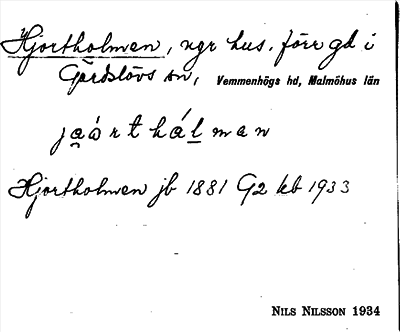 Hjortholmen, ngr hus. förr gd i
Gärdslövs sn, Vemmenhögs hd, Malmöhus län
jaårthálman
Hjortholmen jb 1881 G2 kb 1933
NILS NILSSON 1934